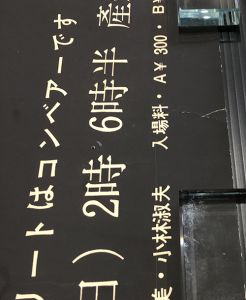 リートはコンベアーです
日）2時・6時半 産
美・小林淑夫 入場料・A¥300・B¥